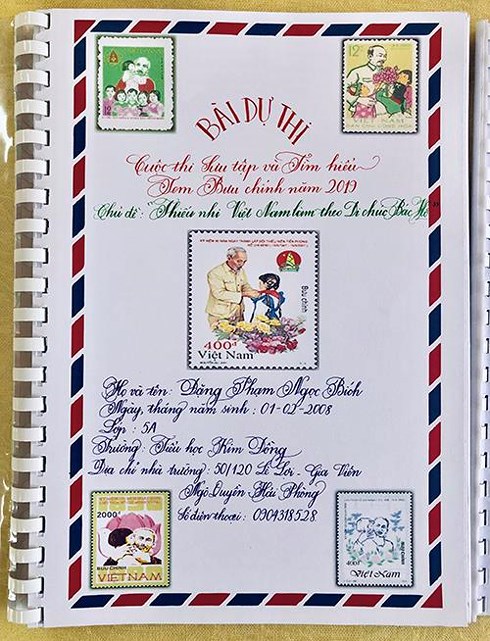 BÀI DỰ THI
Cuộc thi Sưu tập và Tìm hiểu
Tem Bưu chính năm 2019
Chủ đề: "Thiếu nhi Việt Nam làm theo Di chúc Bác Hồ"
Bưu chính
400đ
Việt Nam
Họ và tên: Đặng Phạm Ngọc Bích
Ngày, tháng năm sinh: 01-02-2008
Lớp: 5A
Trường: Tiểu học Kim Đồng
Địa chỉ nhà trường: 50/120 Lê Lợi - Gia Viên
Ngô Quyền Hải Phòng
Số điện thoại: 0904318528
2000đ
BƯU CHÍNH
VIỆTNAM
400đ
Việt Nam